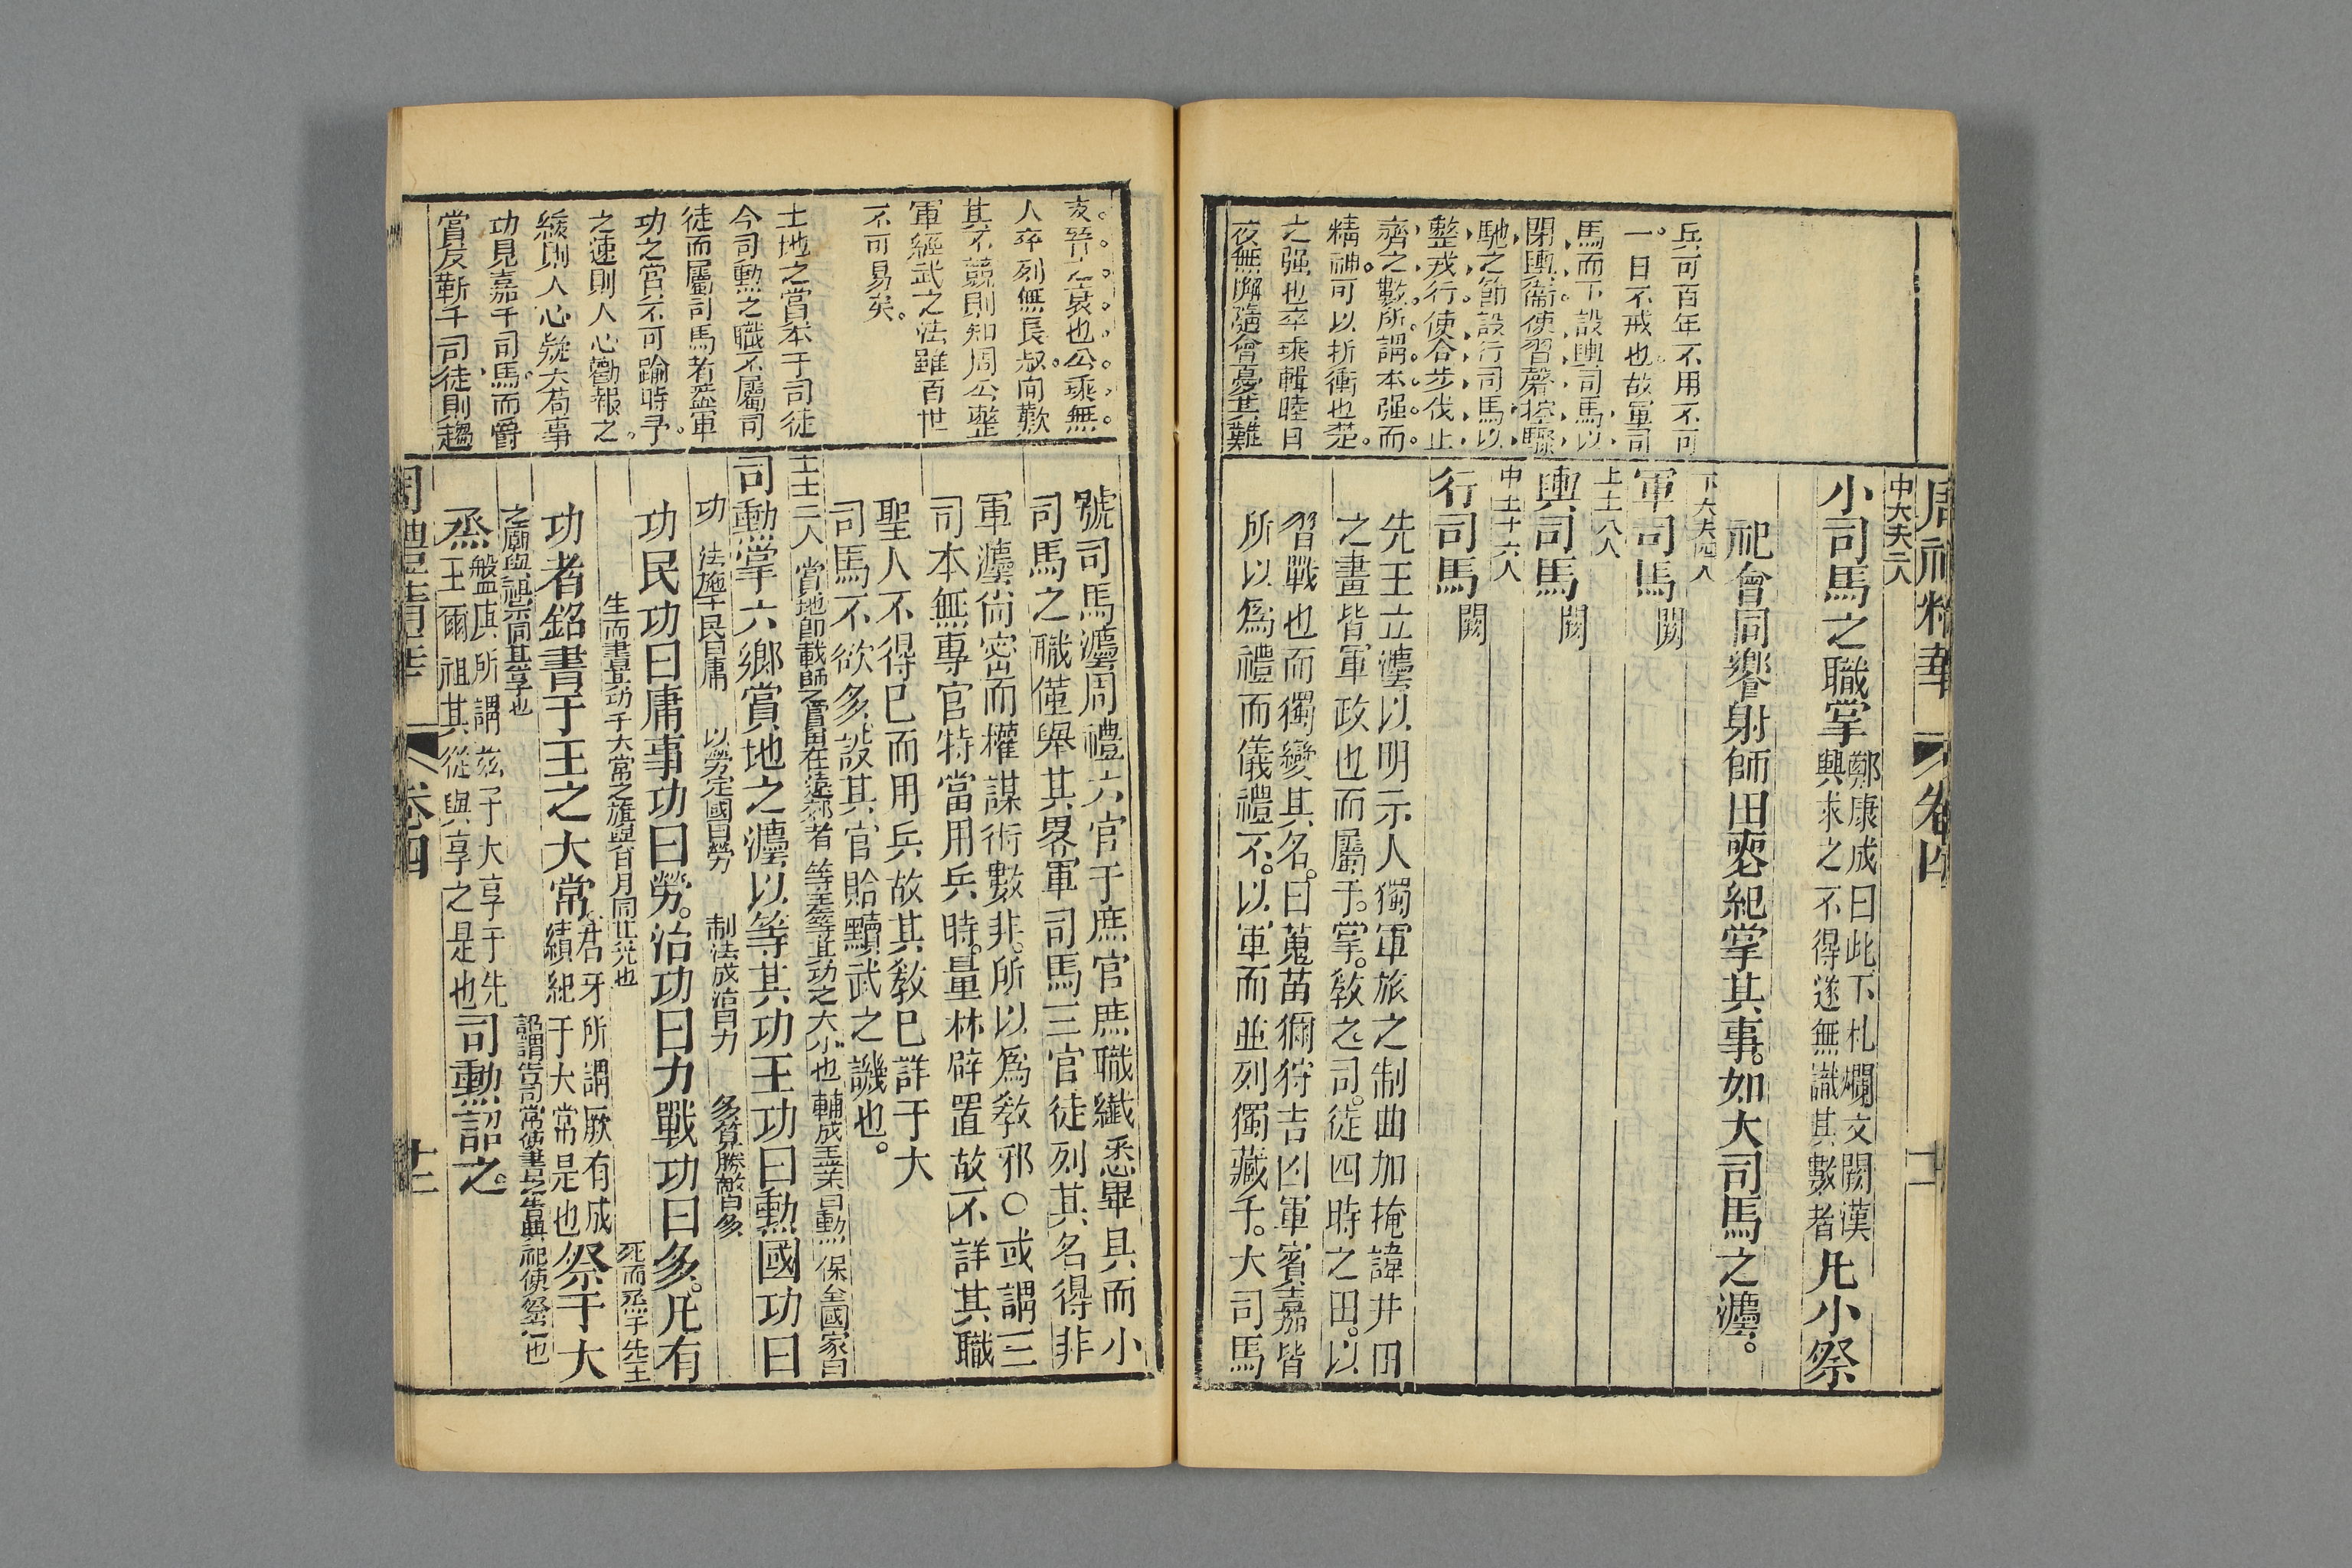 周禮精華
卷四
兵可百年不用不可
一日不戒也故軍司
馬而下設輿司馬以
閑輿衞使習磬控驟
馳之節設行司馬以
整戎行使合步伐止
齊之數所謂本强而
精神可以折衝也楚
之强也卒乘輯睦日
夜無懈隨會憂其難
中大夫二人
小司馬之職掌
鄭康成曰此下札爛文闕漢
興求之不得遂無識其數者
凡小祭
祀會同饗射師田喪紀掌其事如大司馬之灋
下大夫四人
軍司馬 闕
上士八人
輿司馬 闕
中士十六人
行司馬 闕
先王立灋以明示人獨軍旅之制曲加掩諱井田
之畫皆軍政也而屬于掌教之司徒四時之田以
習戰也而獨變其名曰蒐苗獮狩吉凶軍賓嘉皆
所以爲禮而儀禮不以軍而並列獨藏乎大司馬
人卒列無長叔向歎
其不競則知周公整
軍經武之法雖百世
不可易矣
土地之賞本于司徒
今司勳之職不屬司
徒而屬司馬者蓋軍
功之官不可踰時予
之速則人心勸報之
緩則人心疑大荀事
功見嘉于司馬而爵
賞反靳于司徒則趨
號司馬灋周禮六官于庶官庶職纖悉畢具而小
司馬之職僅舉其畧軍司馬三官徒列其名得非
軍灋尙密而權謀術數非所以爲教邪○或謂三
司本無專官特當用兵時量材辟置故不詳其職
聖人不得已而用兵故其教已詳于大
司馬不欲多設其官貽黷武之譏也
上士二人
賞地卽載師之賞田在遠郊者
等差等其功之大小也
輔成王業曰勳
保全國家曰
司勳掌六鄉賞地之灋以等其功王功曰勳國功曰
功
法施于民曰庸
以勞定國曰勞
制法成治曰力
多算勝敵曰多
功民功曰庸事功曰勞治功曰力戰功曰多凡有
生而書其功于大常之旗與日月同其光也
死而烝于先王
功者銘書于王之大常
君牙所謂厥有成
績紀于大常是也
祭于大
之廟與祖宗同其享也
詔謂告司常使書之告典祀使祭之也
烝
盤庚所謂茲予大享于先
王爾祖其從與享之是也
司勳詔之
周禮精華
卷四
十二